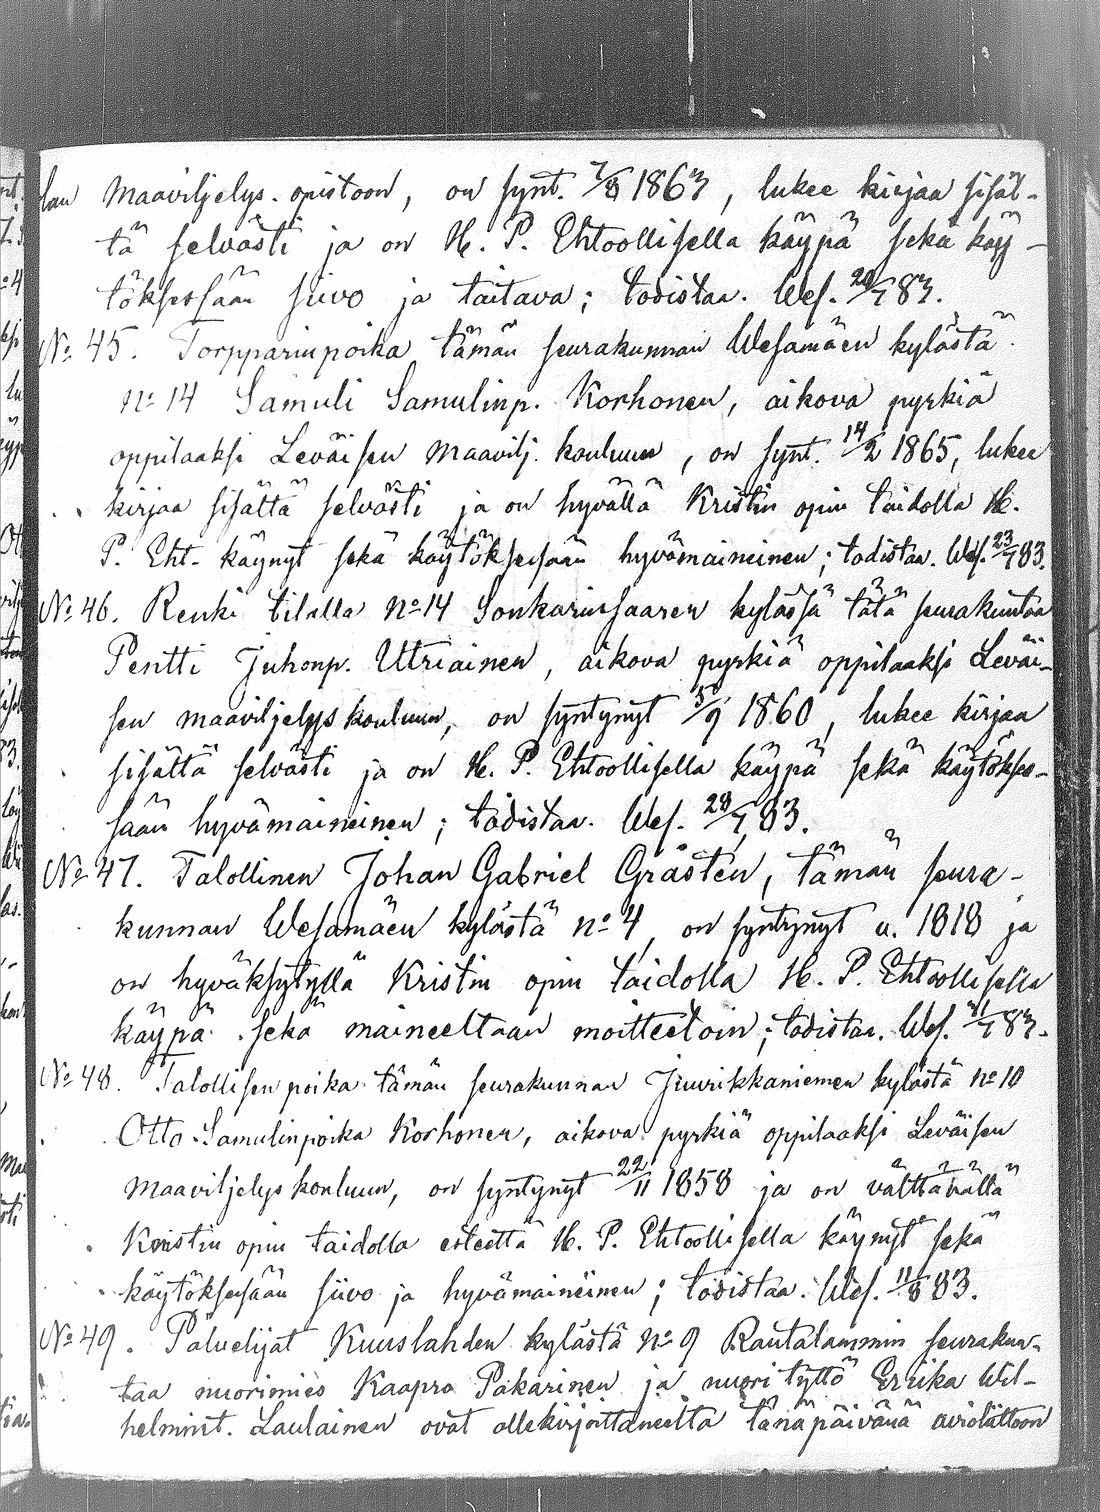 lan maaviljelys-opistoon, on synt. 7/8 1863, lukee kirjaa sisäl-
tä selvästi ja on H. P. Ehtoollisella käypä sekä käy-
töksessään siivo ja taitava; todistaa. Wes. 20/7 83.
No 45. Torpparinpoika tämän seurakunnan Wesamäen kylästä
no 14 Samuli Samulinp. Korhonen, aikova pyrkiä
oppilaaksi Leväisen maavilj. kouluun, on synt. 14/2 1865, lukee
kirjaa sisältä selvästi ja on hyvällä Kristin opin taidolla H.
P. Eht. käynyt sekä käytöksessään hyvämaineinen; todistaa. Wes. 23/7 83.
No 46. Renki tilalla no 14 Sonkarinsaaren kylässä tätä seurakuntaa
Pentti Juhonp. Utriainen, aikova pyrkiä oppilaaksi Leväi-
sen maaviljelyskouluun, on syntynyt 5/9 1860, lukee kirjaa
sisältä selvästi ja on H. P. Ehtoollisella käypä sekä käytökses-
sään hyvämaineinen; todistaa. Wes. 28/7 83.
No 47. Talollinen Johan Gabriel Gråstén, tämän seura-
kunnan Wesamäen kylästä no 4, on syntynyt v. 1818 ja
on hyväksytyllä Kristin opin taidolla H. P. Ehtoollisella
käypä sekä maineeltaan moitteetoin; todistaa. Wes. 31/7 83.
No 48. Talollisenpoika tämän seurakunnan Juurikkaniemen kylästä no 10
Otto Samulinpoika Korhonen, aikova pyrkiä oppilaaksi Leväisen
maaviljelyskouluun, on syntynyt 22/11 1858 ja on välttävällä
Kristin opin taidolla esteettä H. P. Ehtoollisella käynyt sekä
käytöksessään siivo ja hyvämaineinen; todistaa. Wes. 11/8 83.
No 49. Palvelijat Kuuslahden kylästä no 9 Rautalammin seurakun-
taa nuorimies Kaapro Pakarinen ja nuori tyttö Eriika Wil-
helmint. Laulainen ovat allekirjoittaneelta tänäpäivänä avioliittoon